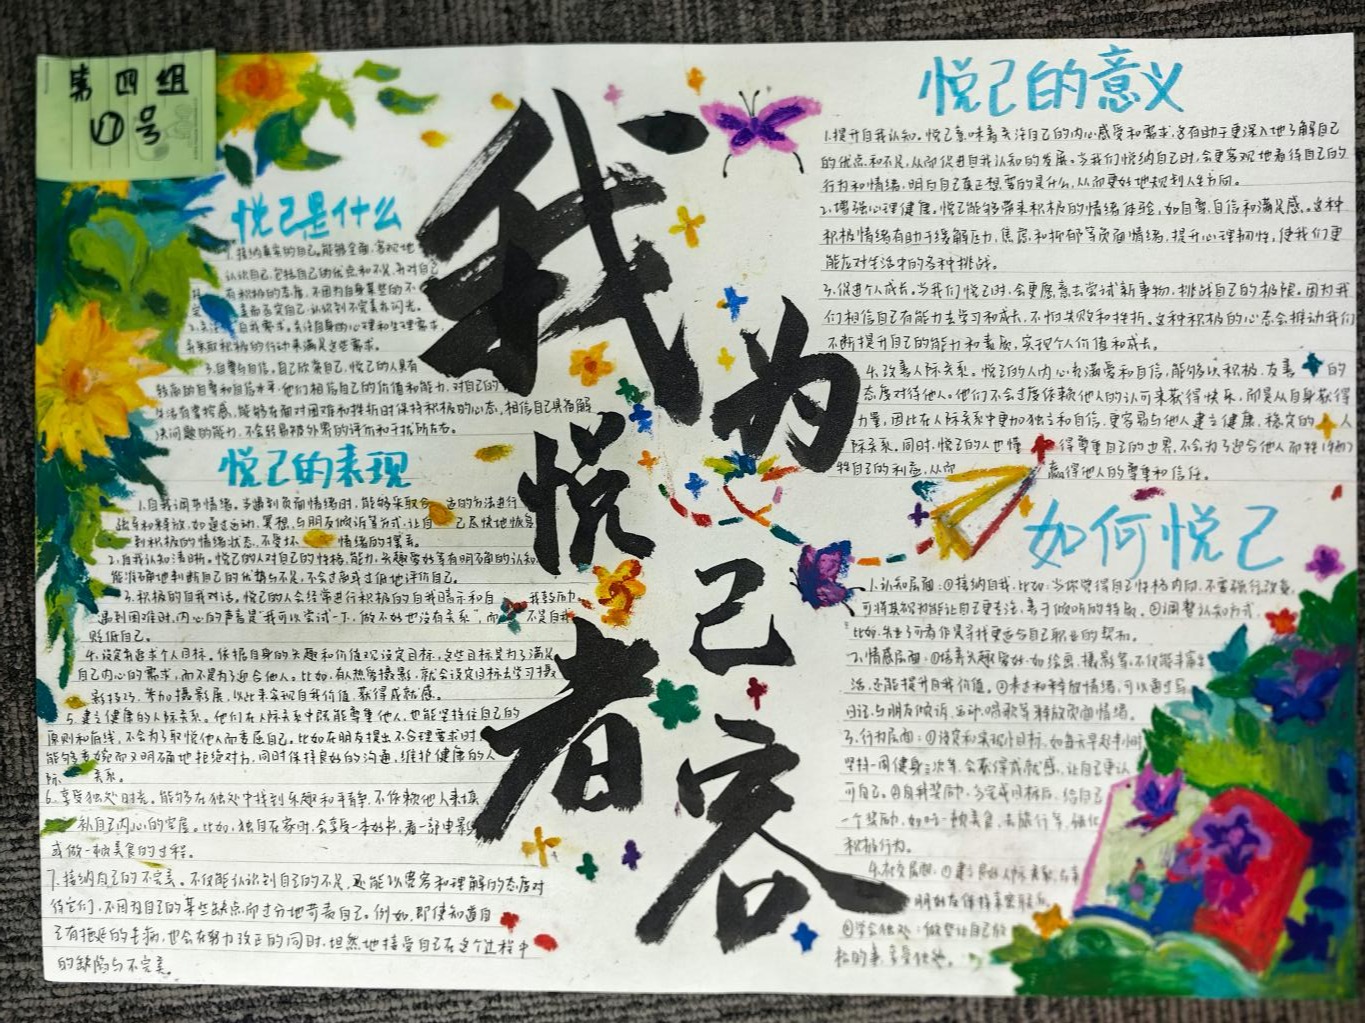 第四组
17号
我悦者
为己容
悦己是什么
1.接纳真实的自己。能够全面、客观地
认识自己,包括自己的优点和不足,并对自己
有积极的态度,不因为自身某些的不
2.关注自我需求。关注自身的心理和生理需求,
并采取积极的行动来满足这些需求。
3.自尊与自信。自己欣赏自己,悦己的人具有
较高的自尊和自信水平,他们相信自己的价值和能力,对自己的
生活有掌控感,能够在面对困难和挫折时保持积极的心态,相信自己具备解
决问题的能力,不会轻易被外界的评价和干扰所左右。
悦己的表现
1.自我调节情绪。当遇到负面情绪时,能够采取合适的方法进行
疏导和释放,如通过运动、冥想、与朋友倾诉等方式,让自己尽快地恢复
到积极的情绪状态,不受坏情绪的摆弄。
2.自我认知清晰。悦己的人对自己的性格、能力、兴趣爱好等有明确的认知,
能准确地判断自己的优势与不足,不会过高或过低地评价自己。
3.积极的自我对话。悦己的人会经常进行积极的自我暗示和自我鼓励,
遇到困难时,内心的声音是“我可以尝试一下,做不好也没有关系”,而不是自我
贬低自己。
4.设定并追求个人目标。依据自身的兴趣和价值观设定目标,这些目标是为了满足
自己内心的需求,而不是为了迎合他人。比如,有人热爱摄影,就会设定目标去学习摄
影技巧,参加摄影展,以此来实现自我价值,获得成就感。
5.建立健康的人际关系。他们在人际关系中既能尊重他人,也能坚持住自己的
原则和底线,不会为了取悦他人而委屈自己。比如在朋友提出不合理要求时,
能够委婉而又明确地拒绝对方,同时保持良好的沟通,维护健康的人
际关系。
6.享受独处时光。能够在独处中找到乐趣和平静,不依赖他人来填
补自己内心的空虚。比如,独自在家时,会享受一本好书,看一部电影
或做一顿美食的过程。
7.接纳自己的不完美。不仅能认识到自己的不足,还能以宽容和理解的态度对
待它们,不因为自己的某些缺点而过分地苛责自己。例如,即使知道自
己有拖延的毛病,也会在努力改正的同时,坦然地接受自己在这个过程中
的缺陷与不完美。
悦己的意义
1.提升自我认知。悦己意味着关注自己的内心感受和需求,这有助于更深入地了解自己
的优点和不足,从而促进自我认知的发展。当我们悦纳自己时,会更客观地看待自己的
行为和情绪,明白自己真正想要的是什么,从而更好地规划人生方向。
2.增强心理健康。悦己能够带来积极的情绪体验,如自尊、自信和满足感。这种
积极情绪有助于缓解压力、焦虑和抑郁等负面情绪,提升心理韧性,使我们更
能应对生活中的各种挑战。
3.促进个人成长。当我们悦己时,会更愿意去尝试新事物,挑战自己的极限。因为我
们相信自己有能力去学习和成长,不怕失败和挫折。这种积极的心态会推动我们
不断提升自己的能力和素质,实现个人价值和成长。
4.改善人际关系。悦己的人内心充满爱和自信,能够以积极、友善的
态度对待他人。他们不会过度依赖他人的认可来获得快乐,而是从自身获得
力量,因此在人际关系中更加独立和自信,更容易与他人建立健康、稳定的人
际关系。同时,悦己的人也懂得尊重自己的边界,不会为了迎合他人而牺牲
自己的利益,从而赢得他人的尊重和信任。
如何悦己
1.认知层面:①接纳自我。比如,当你觉得自己性格内向,不需强行改变,
可将其视为能让自己更专注、善于倾听的特质。②调整认知方式,
比如,失去了可看作是寻找更适合自己职业的契机。
2.情感层面:①培养兴趣爱好,如绘画、摄影等,不仅能丰富生
活,还能提升自我价值。②表达和释放情绪,可以通过写
日记、与朋友倾诉、运动、唱歌等释放负面情绪。
3.行为层面:①设定和实现小目标,如每天早起半小时
坚持一周健身三次等,会获得成就感,让自己更认
可自己。②自我奖励,当完成目标后,给自己
一个奖励,如吃一顿美食、去旅行等,强化
积极行为。
4.社交层面:①建立良好人际关系,与
朋友保持亲密联系。
②学会独处:做些让自己放
松的事,享受独处。